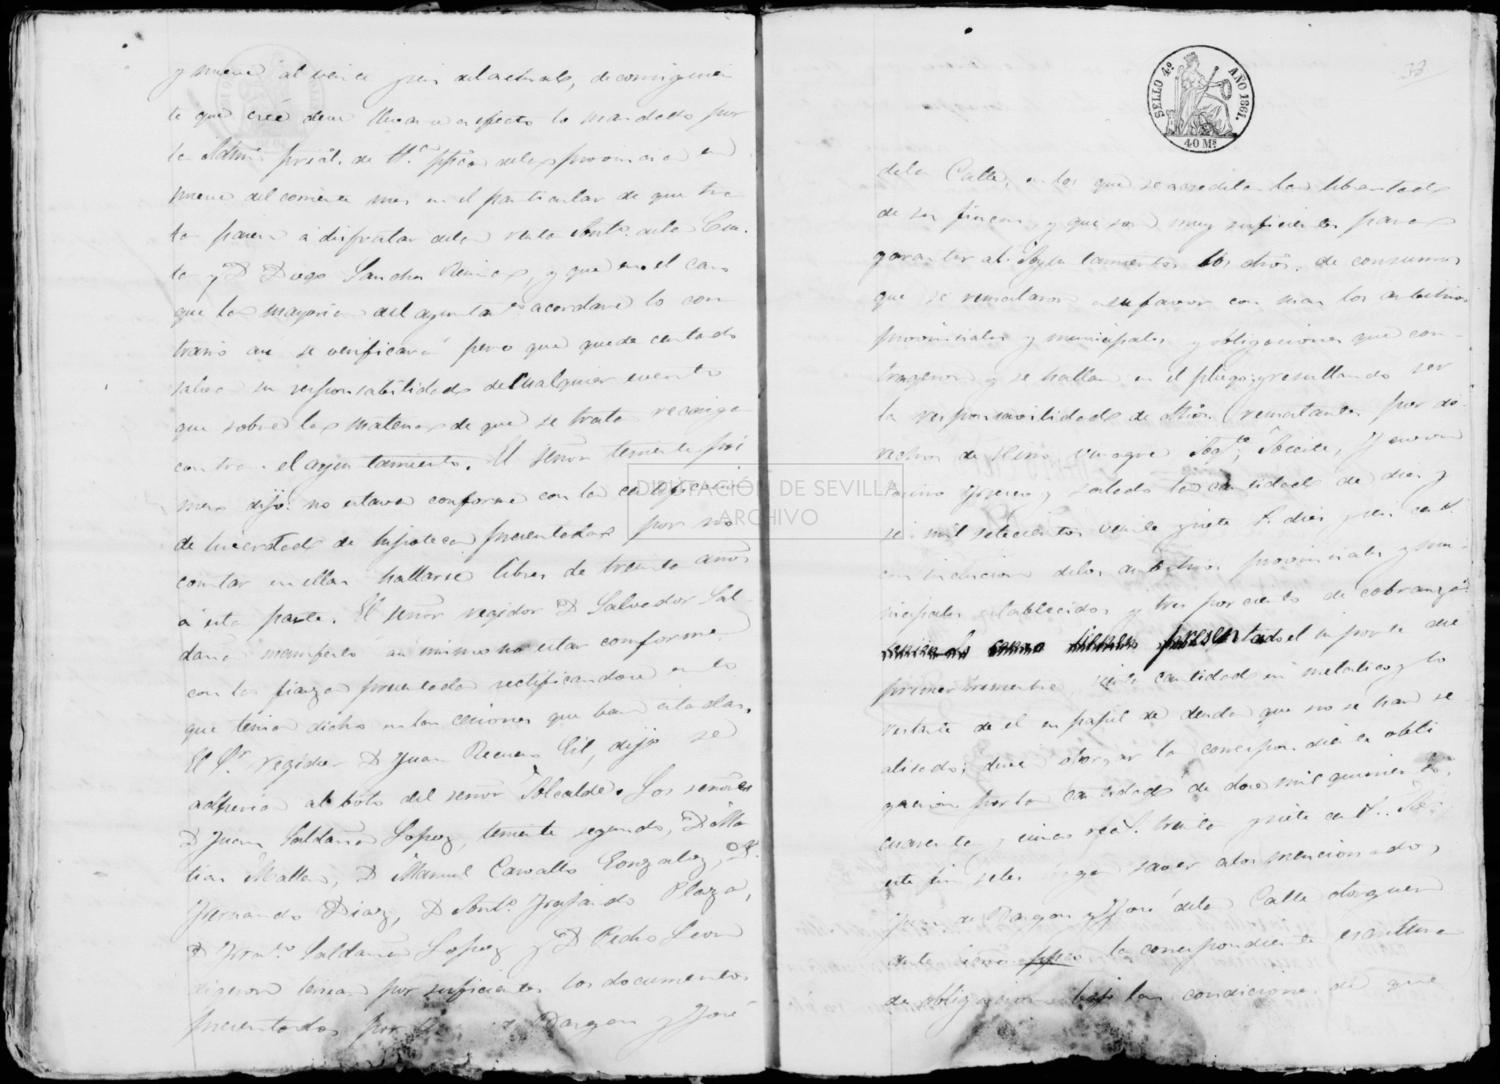 y nueve al veinte y seis del actual, de consiguien
te que créé deve llevarse a efecto lo mandado por
la Admon. pral. de Ha. ppca. de la provincia en
nueve del corriente mes en el particular de que tra
ta pasen a disfrutar de la venta Anto. de la Cru-
z y D. Diego Sanchez y que en el caso
que la mayoria del ayuntamto. acordare lo con
trario asi se verificará pero que queda central
salva su responsabilidad de cualquier evento
que sobre la materia de que se trata recaiga
contra el ayuntamiento. El Señor teniente pri
mero dijo: no estava conforme con la certificacion
de livertad de hipoteca presentadas por no
constar en ellas hallarse libres de treinta años
á esta parte. El señor regidor D. Salvador Sal-
daña manifestó asi mismo no estar conforme
con la fianza presentada rectificandose en lo
que tenia dicho en las cesiones que han citadas.
El Sr. regidor D. Juan Recuero Gil, dijo se
adheria al boto del señor Alcalde. Los señores
D. Juan Saldaña Lopez, teniente segundo, D. Ma
tias Matta, D. Manuel Caravallo Gonzalez, D.
Fernando Diaz, D. Anto. Plaza,
D. Franco. Saldaña Lopez y D. Pedro Leon
digeron tenian por suficientes los documentos
presentados por Bargon y José
SELLO 4º AÑO 1861.
40 Ms.
33
de la Calle, en los que se acredita la libertad
de sus fincas y que son muy suficientes para
garantir al Ayuntamiento los dros. de consumos
que se remataron a su favor con mas los arbitrios
provinciales y municipales y obligaciones que con-
trageron y se hallan en el pliego; y resultando ser
la responsavilidad de dhos. rematantes por de
rechos de vino vinagre Agte. Aceite, y carnes
y saladas la cantidad de diez y
seis mil setecientos veinte y siete rs. diez y seis cents.
con inclusion de los arbitrios provinciales y mu-
nicipales establecidos y tres por ciento de cobranza
presentado el importe del
primer trimestre, cuya cantidad en metalico y lo
restante de el en papel de deuda que no se han se
alisado; deve otorgar la correspondiente obli
gacion por la cantidad de doce mil quinientos,
cuarenta y cinco real. treinta y siete cents. A
este fin se les haga saver a los mencionados,
Juan de Bargon y José de la Calle otorguen
ante la correspondiente escritura
de obligacion bajo las condiciones de que
DIPUTACIÓN DE SEVILLA
ARCHIVO